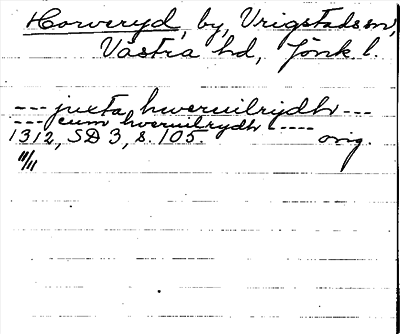 Horveryd, by, Vrigstads sn,
Västra hd, Jönk l.
--- juxta hweruilrydh ---
--- cum hweruilrydh ----
1312, SD 3, s. 105. orig.
11/11